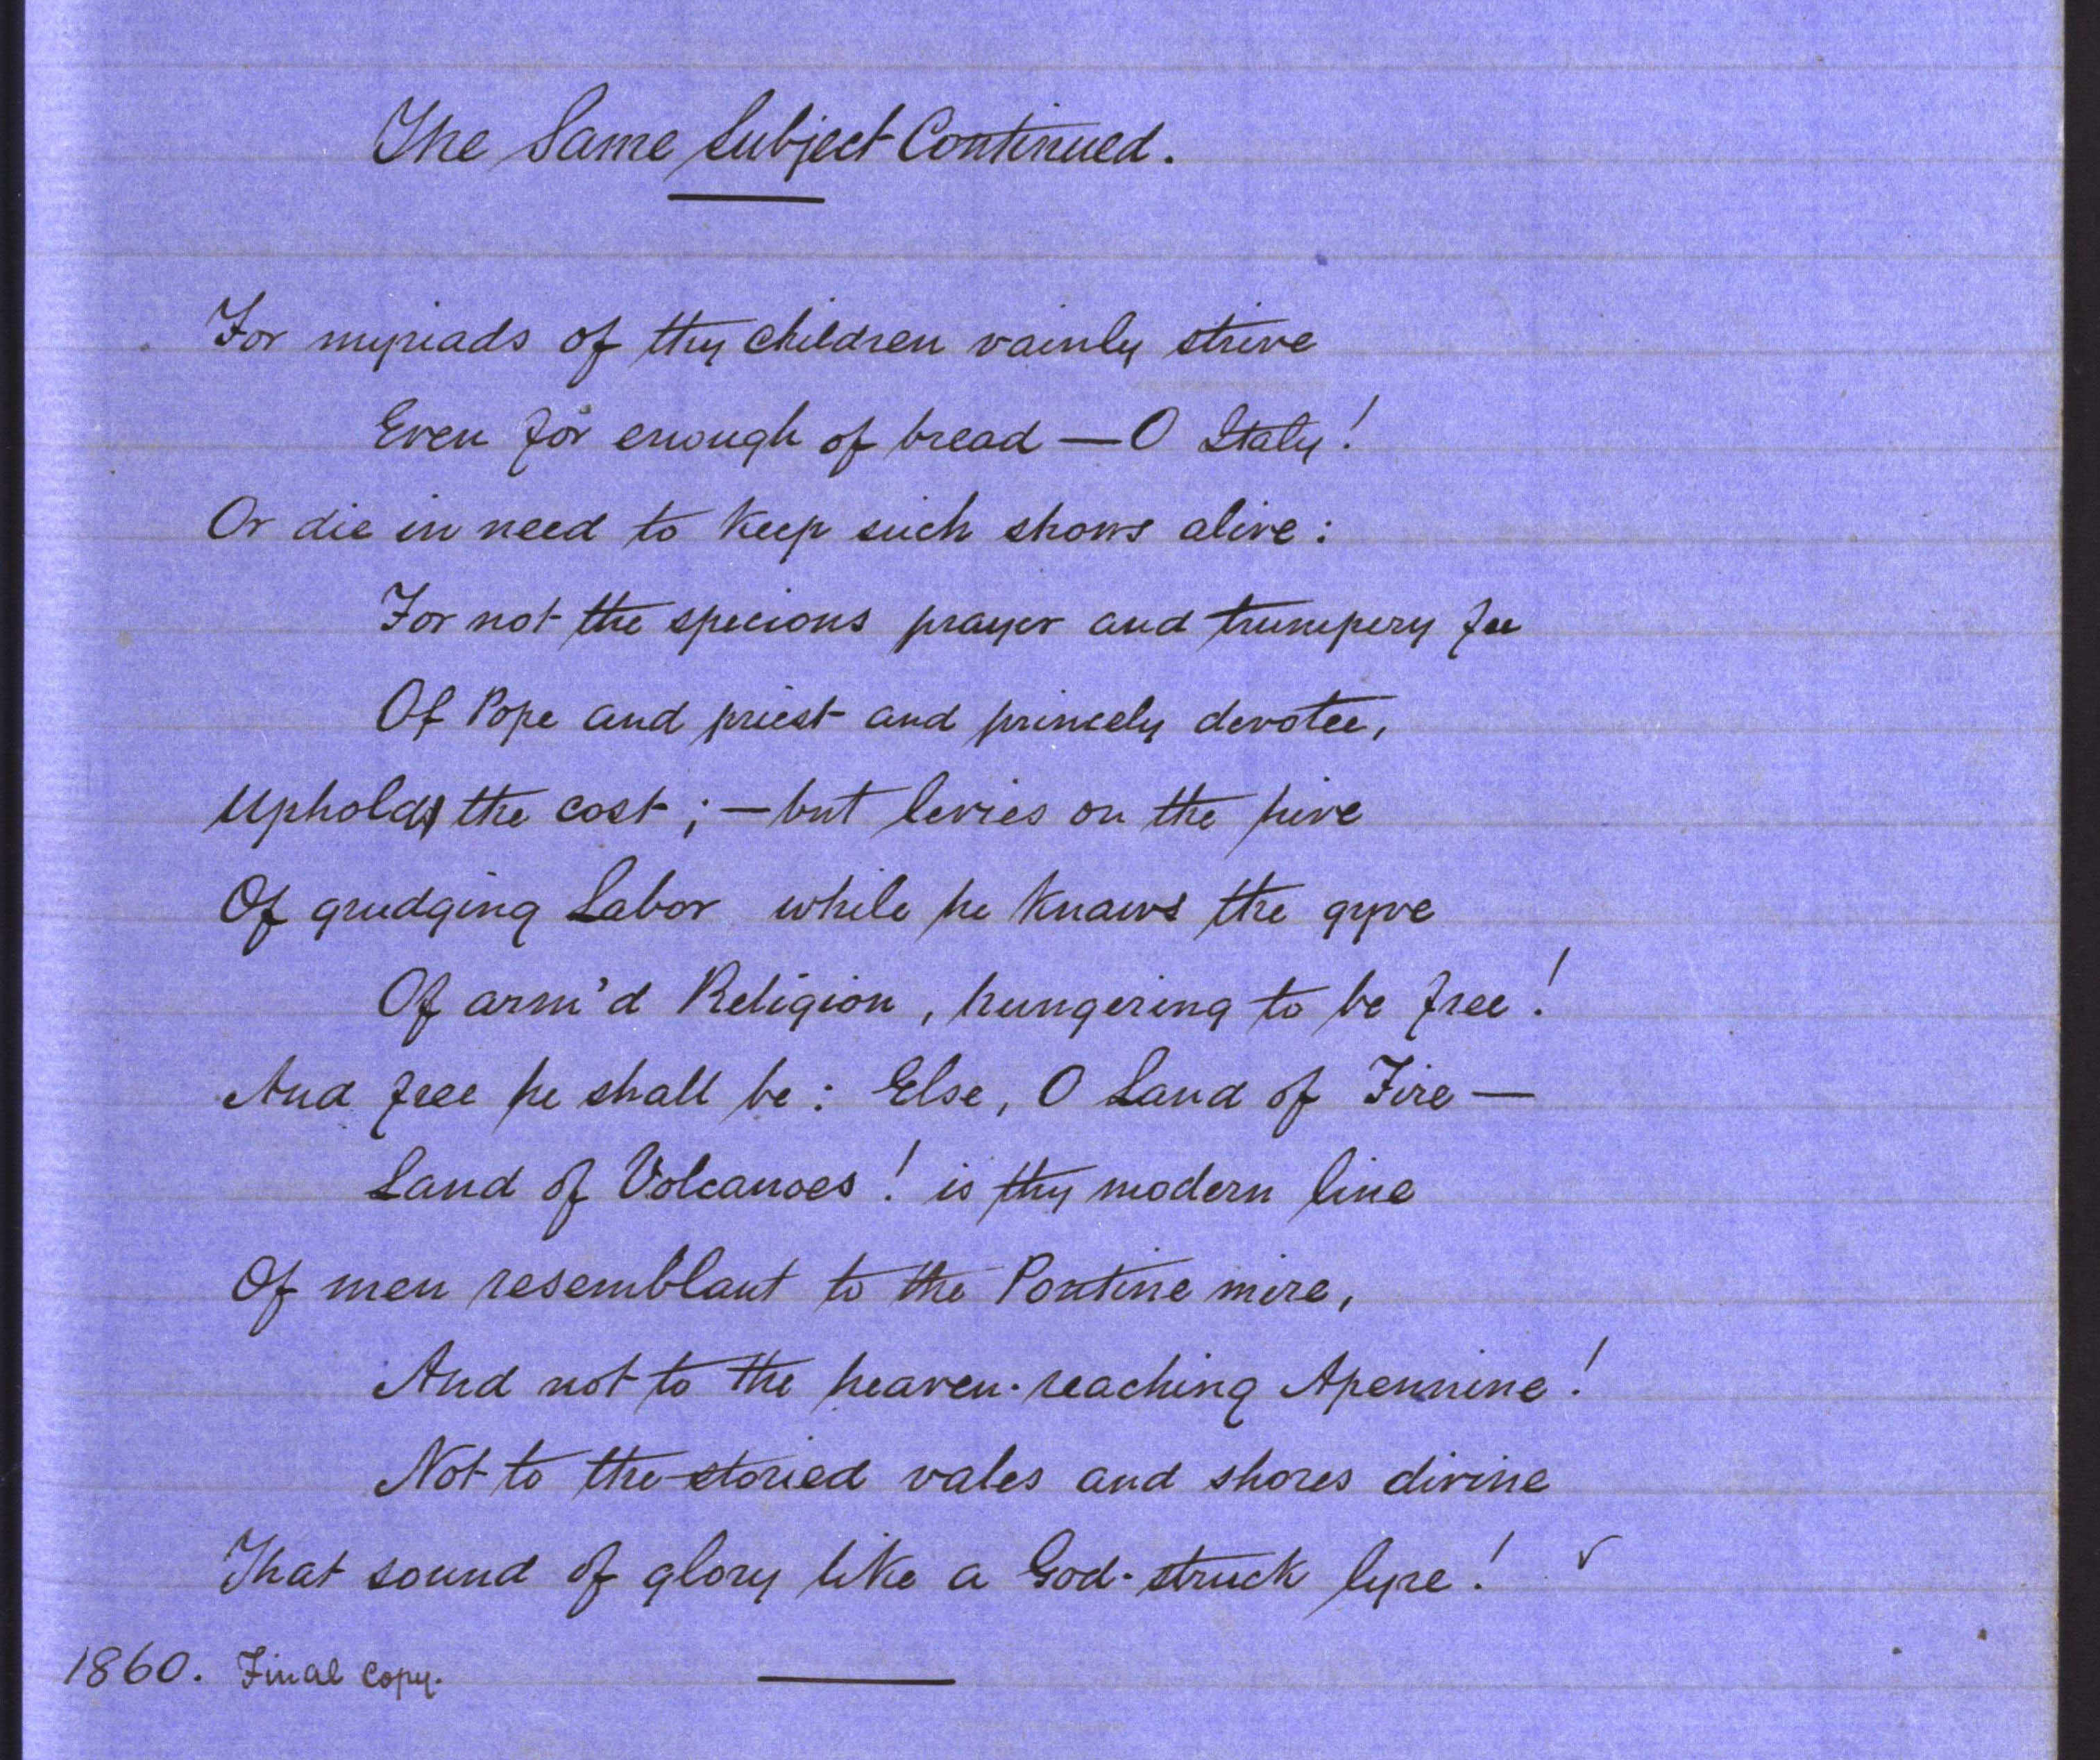 The Same Subject Continued.
For myriads of thy children vainly strive
Even for enough of bread — O Italy!
Or die in need to keep such shows alive:
For not the specious prayer and trumpery fee
Of Pope and priest and princely devotee,
Upholds the cost; — but levies on the hive
Of grudging Labor while he knaws the gyve
Of arm'd Religion, hungering to be free!
And free he shall be: Else, O Land of Fire —
Land of Volcanoes! is thy modern line
Of men resemblant to the Pontine mire,
And not to the heaven-reaching Apennine!
Not to the storied vales and shores divine
That sound of glory like a God-struck lyre! ✓
1860. Final copy.